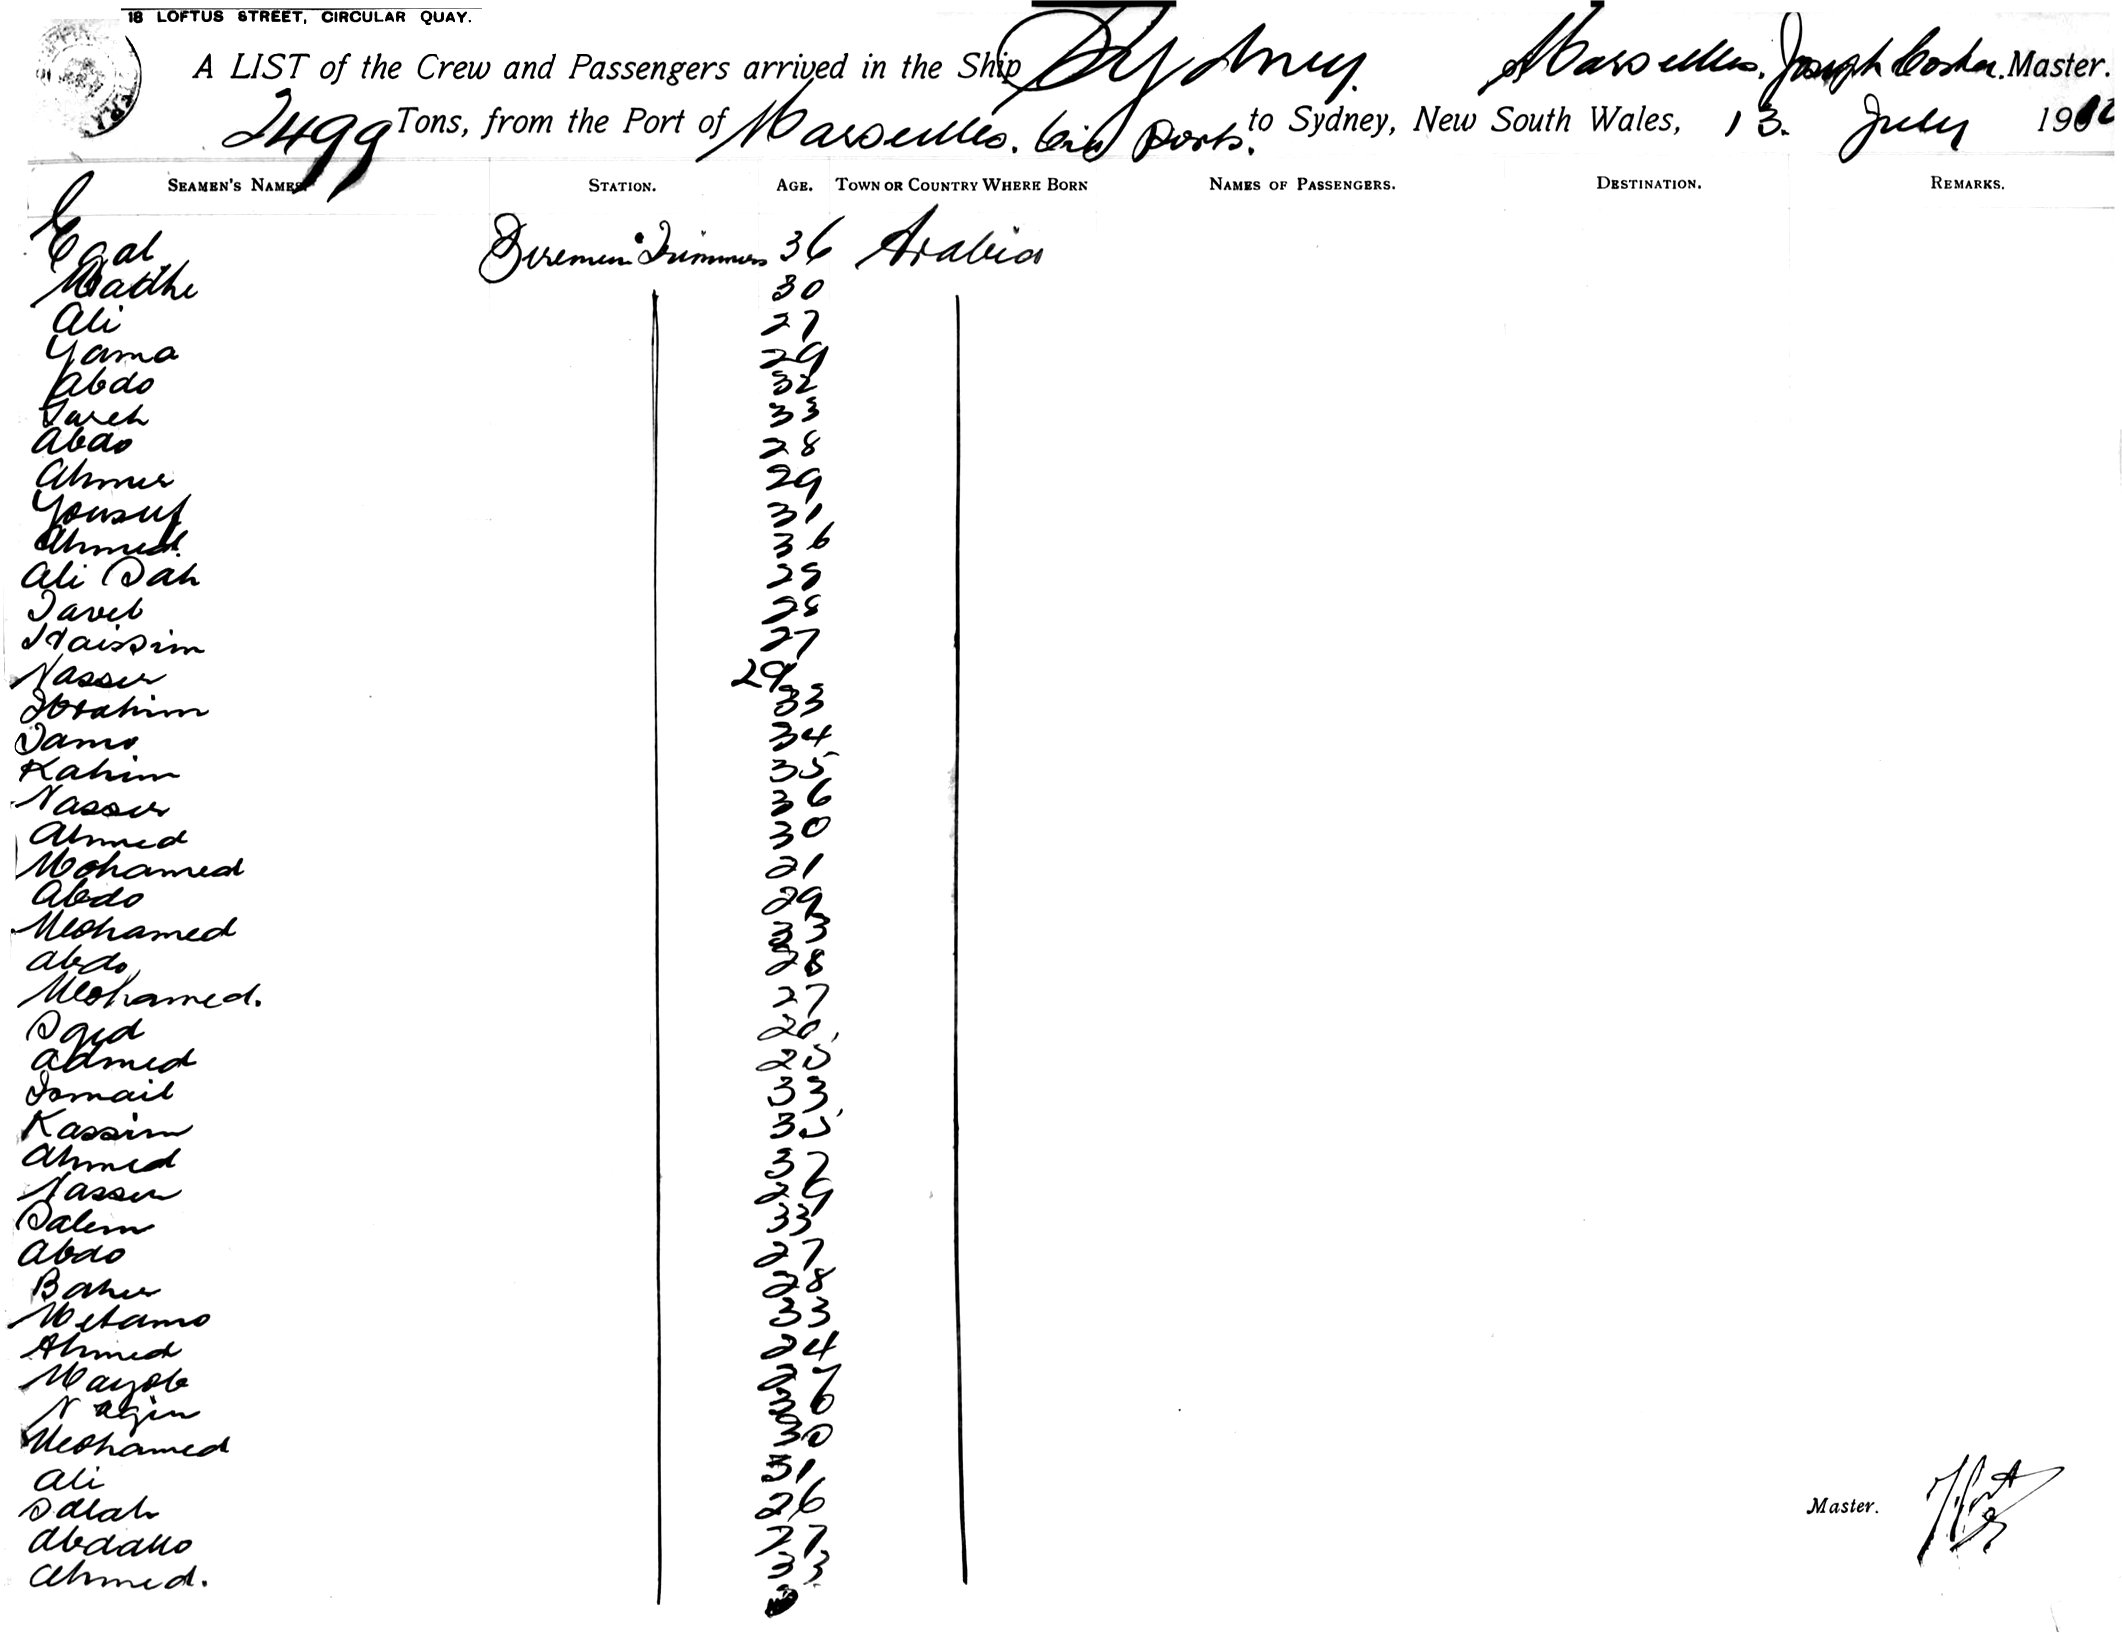 18 LOFTUS STREET, CIRCULAR QUAY.
A LIST of the Crew and Passengers arrived in the Ship Sydney. Marseilles. Joseph Master.
2499 Tons, from the Port of Marseilles. via Ports. to Sydney, New South Wales, 13. July 19
SEAMEN'S NAMES STATION. AGE. TOWN OR COUNTRY WHERE BORN NAMES OF PASSENGERS. DESTINATION. REMARKS.
Egal Firemen Trimmers 36 Arabia
Madhe 30
Ali 27
Yama 29
Abdo 32
Fareh 33
Abdo 28
Ahmer 29
Yousuf 31
Ahmed. 36
Ali Sah
28
27
Nasser 29
Ibrahim 33
Jamo 34
Kahim 35
Nasser 36
Ahmed 30
Mohamed 21
Abdo 29
Mohamed 33
Abdo 28
Mohamed. 27
Syed
Admed 25
Ismail 33
Kassim 35
Ahmed 32
Nasser 29
Salem 33
Abdo 27
Baher 28
Metamo 33
Ahmed 24
Mayob
Nagin 36
Mohamed 30
Ali 31
26 Master.
27
Ahmed. 33